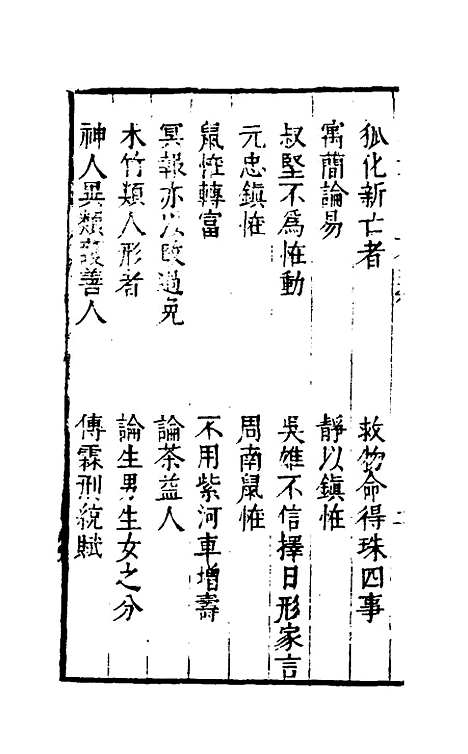 狐化新亡者
救物命得珠四事
寓簡論易
靜以鎮恠
叔堅不爲恠動
吳雄不信擇日形家言
元忠鎮恠
周南鼠恠
鼠恠轉富
不用紫河車增壽
冥報亦以改過免
論茶益人
木竹類人形者
論生男生女之分
神人異類護善人
傅霖刑統賦